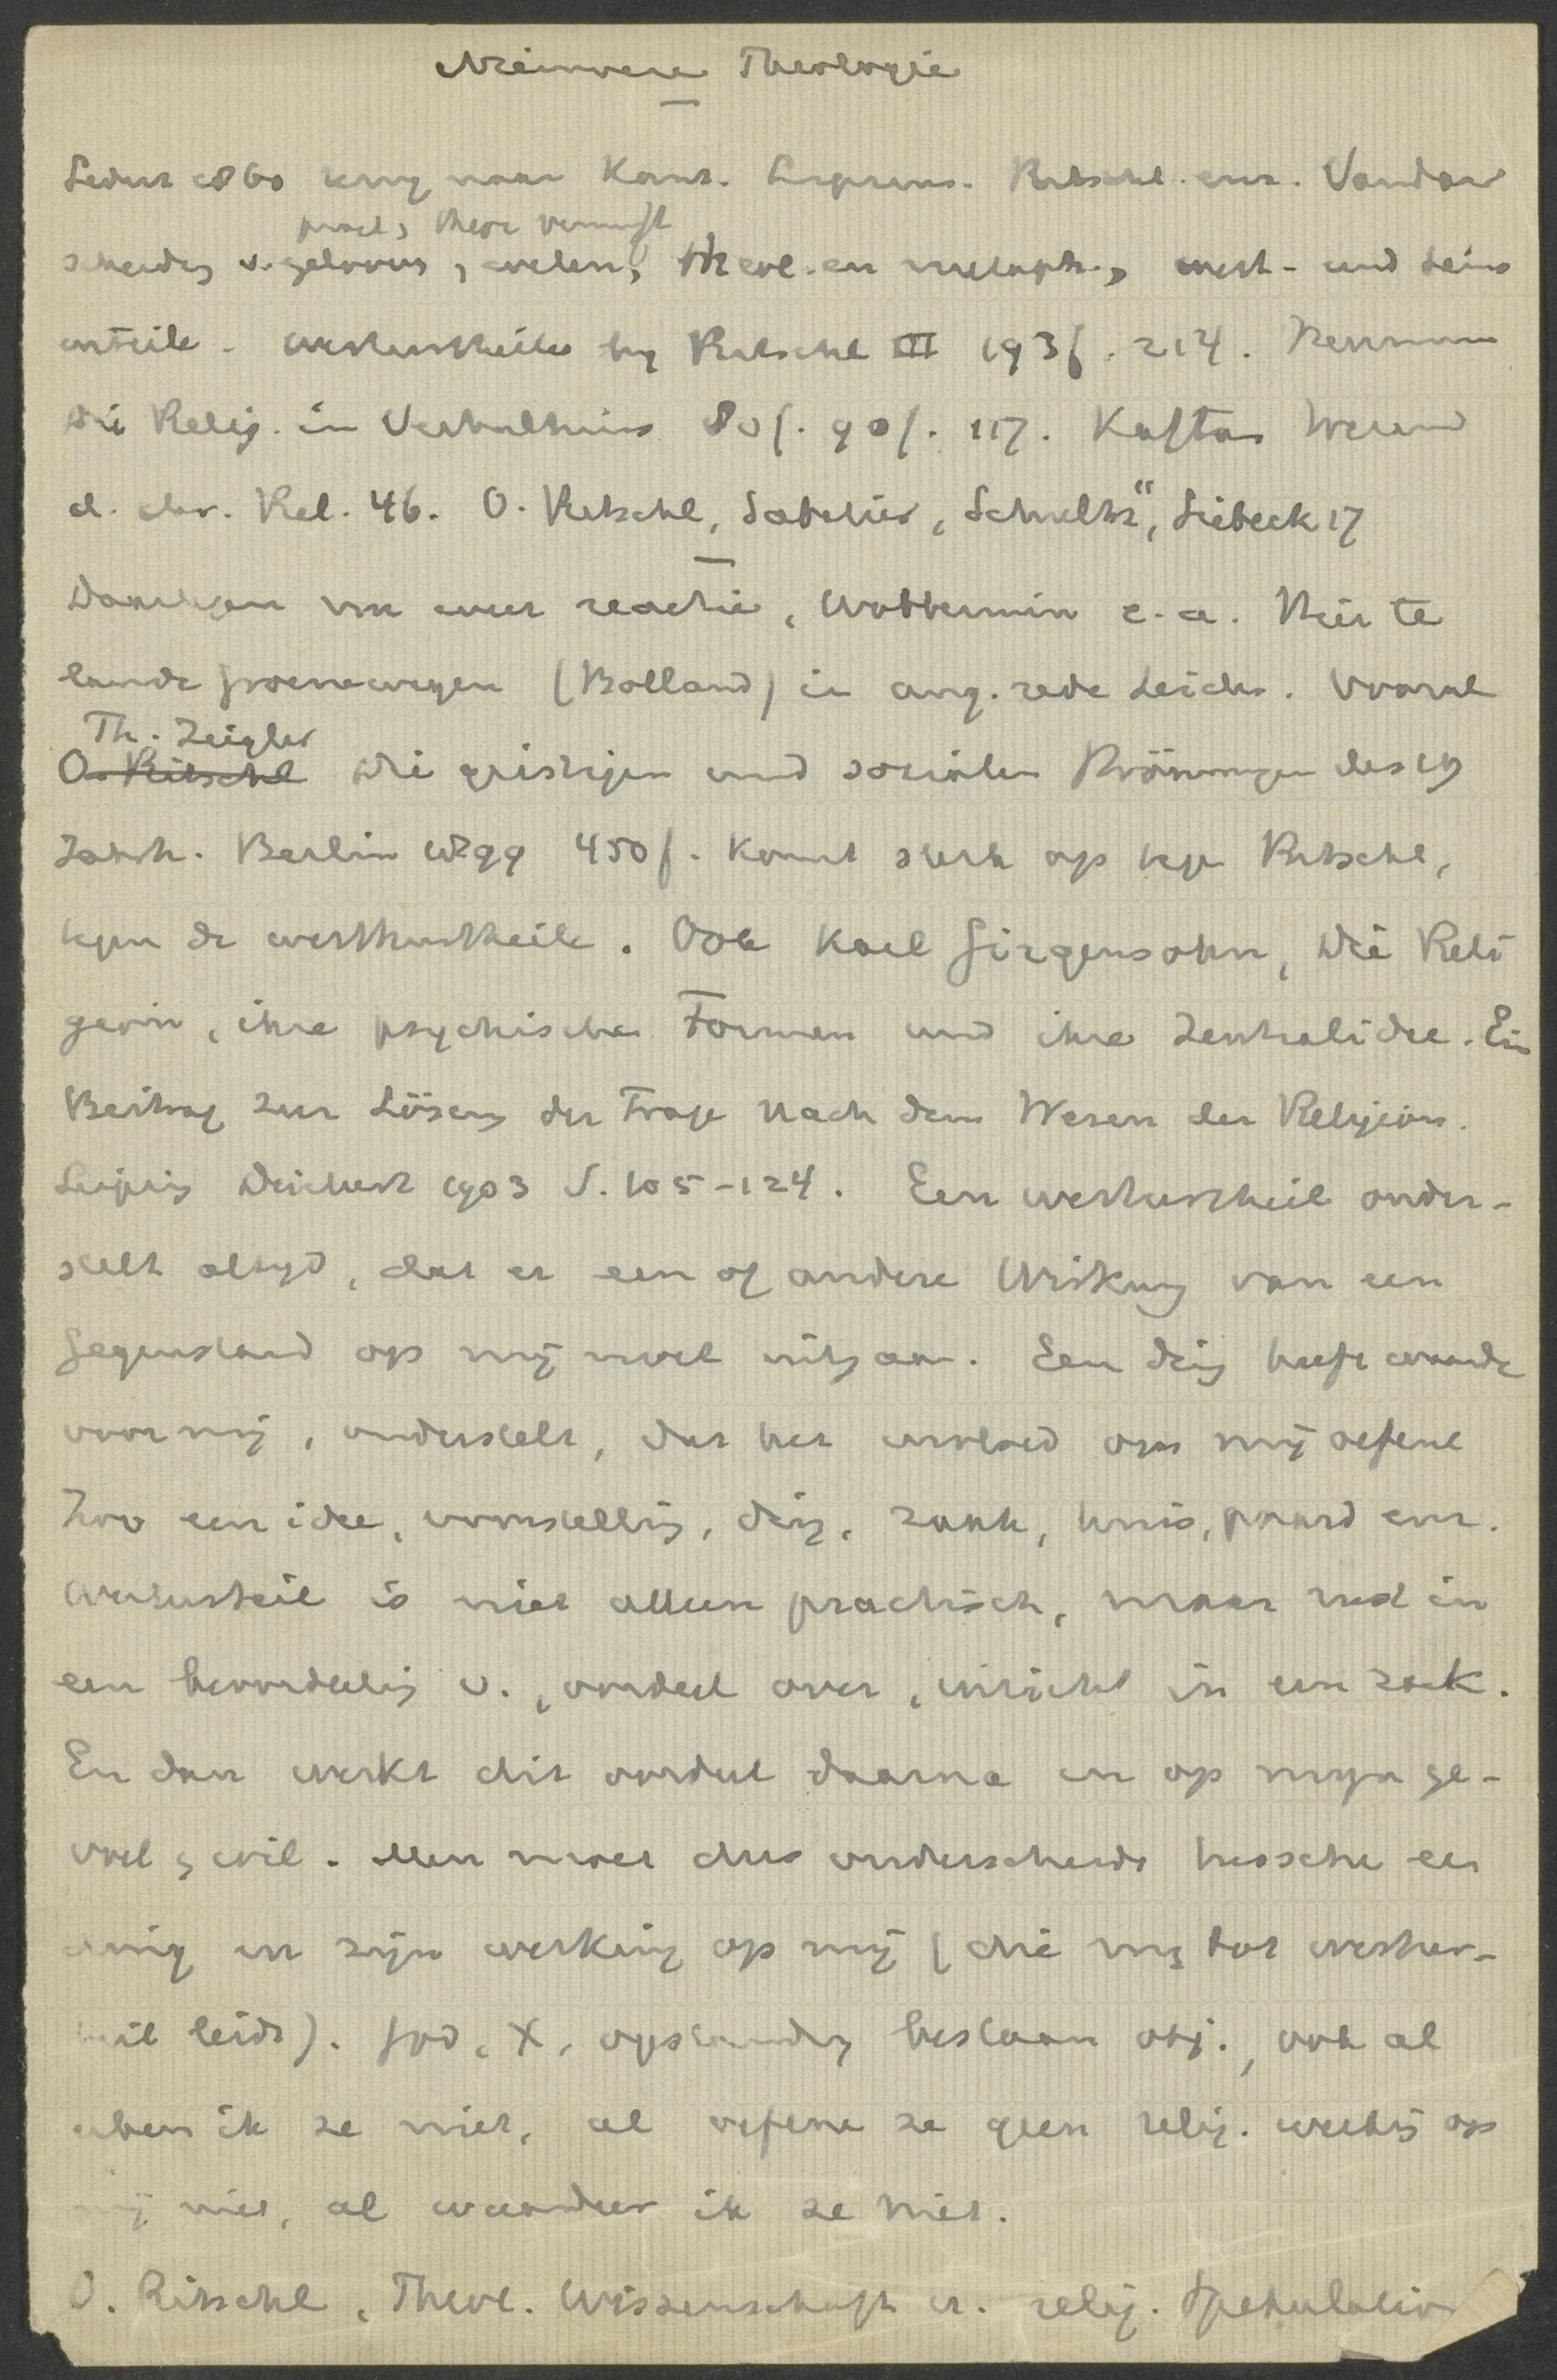 Nieuwere Theologie
Sedert 1860 terug naar Kant. Lipsius. Ritschl. enz. Vandaar
pract, theor vernunft
scheidg v. gelooven, weten, theol. en metaph., wert- und Seins
urteile. Werturtheile by Ritschl III 193f. 214. Herrmann
Die Relig. in Verhaltniss 80f. 90f. 117. Kaftan Wesen
d. chr. Rel. 46. O. Ritschl, Sabatier, Schultz, Siebeck 17
Daartegen nu weer reactie, Wobbermin e.a. Hier te
lande Groenewegen (Bolland) in ang. rede Leiden. Vooral
Th. Zeigler
O. Ritschl Die geistigen und socialen Strömungen des 19
Jahrh. Berlin 1899 450f. komt sterk op tegen Ritschl,
tegen de werthurtheile. Ook Karl Girgensohn, Die Reli
gion, ihre psychische Formen und ihre Zentralidee. Ein
Beitrag zur Lösung der Frage nach dem Wesen der Religion.
Leipzig Deichert 1903 S. 105-124. Een werturtheil onder-
stelt altyd, dat er een of andere Wirkung van een
Gegenstand op mij moet uitgaan. Een ding heeft waarde
voor mij, onderstelt, dat het invloed op mij oefene
Zoo een idee, voorstelling, ding, zaak, huis, paard enz.
Werturteil is niet alleen practisch, maar rust in
een beoordeeling v., oordeel over, inzicht in een zaak.
En dan werkt dit oordeel daarna in op mijn ge-
voel, wil. Men moet dus onderscheide tussche een
ding en zijn werking op mij (die mij tot wertur-
teil leidt). God, X, opstanding bestaan obj., ook al
ken ik ze niet, al oefene ze geen relig. werking op
mij niet, al waardeer ik ze niet.
O. Ritschl, Theol. Wissenschaft u. relig. Spekulation